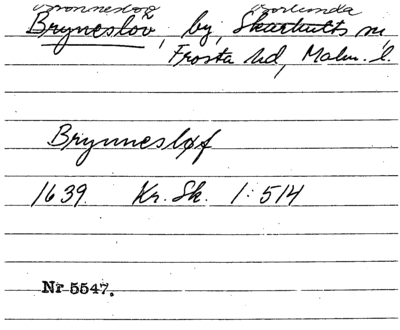 Brönneslöv Svörlinda
Bryneslöv, by, Skarhults sn,
Frosta hd, Malm. l.
Brynnesløf
1639. Kr. Sk. 1:514
Nr 5547.